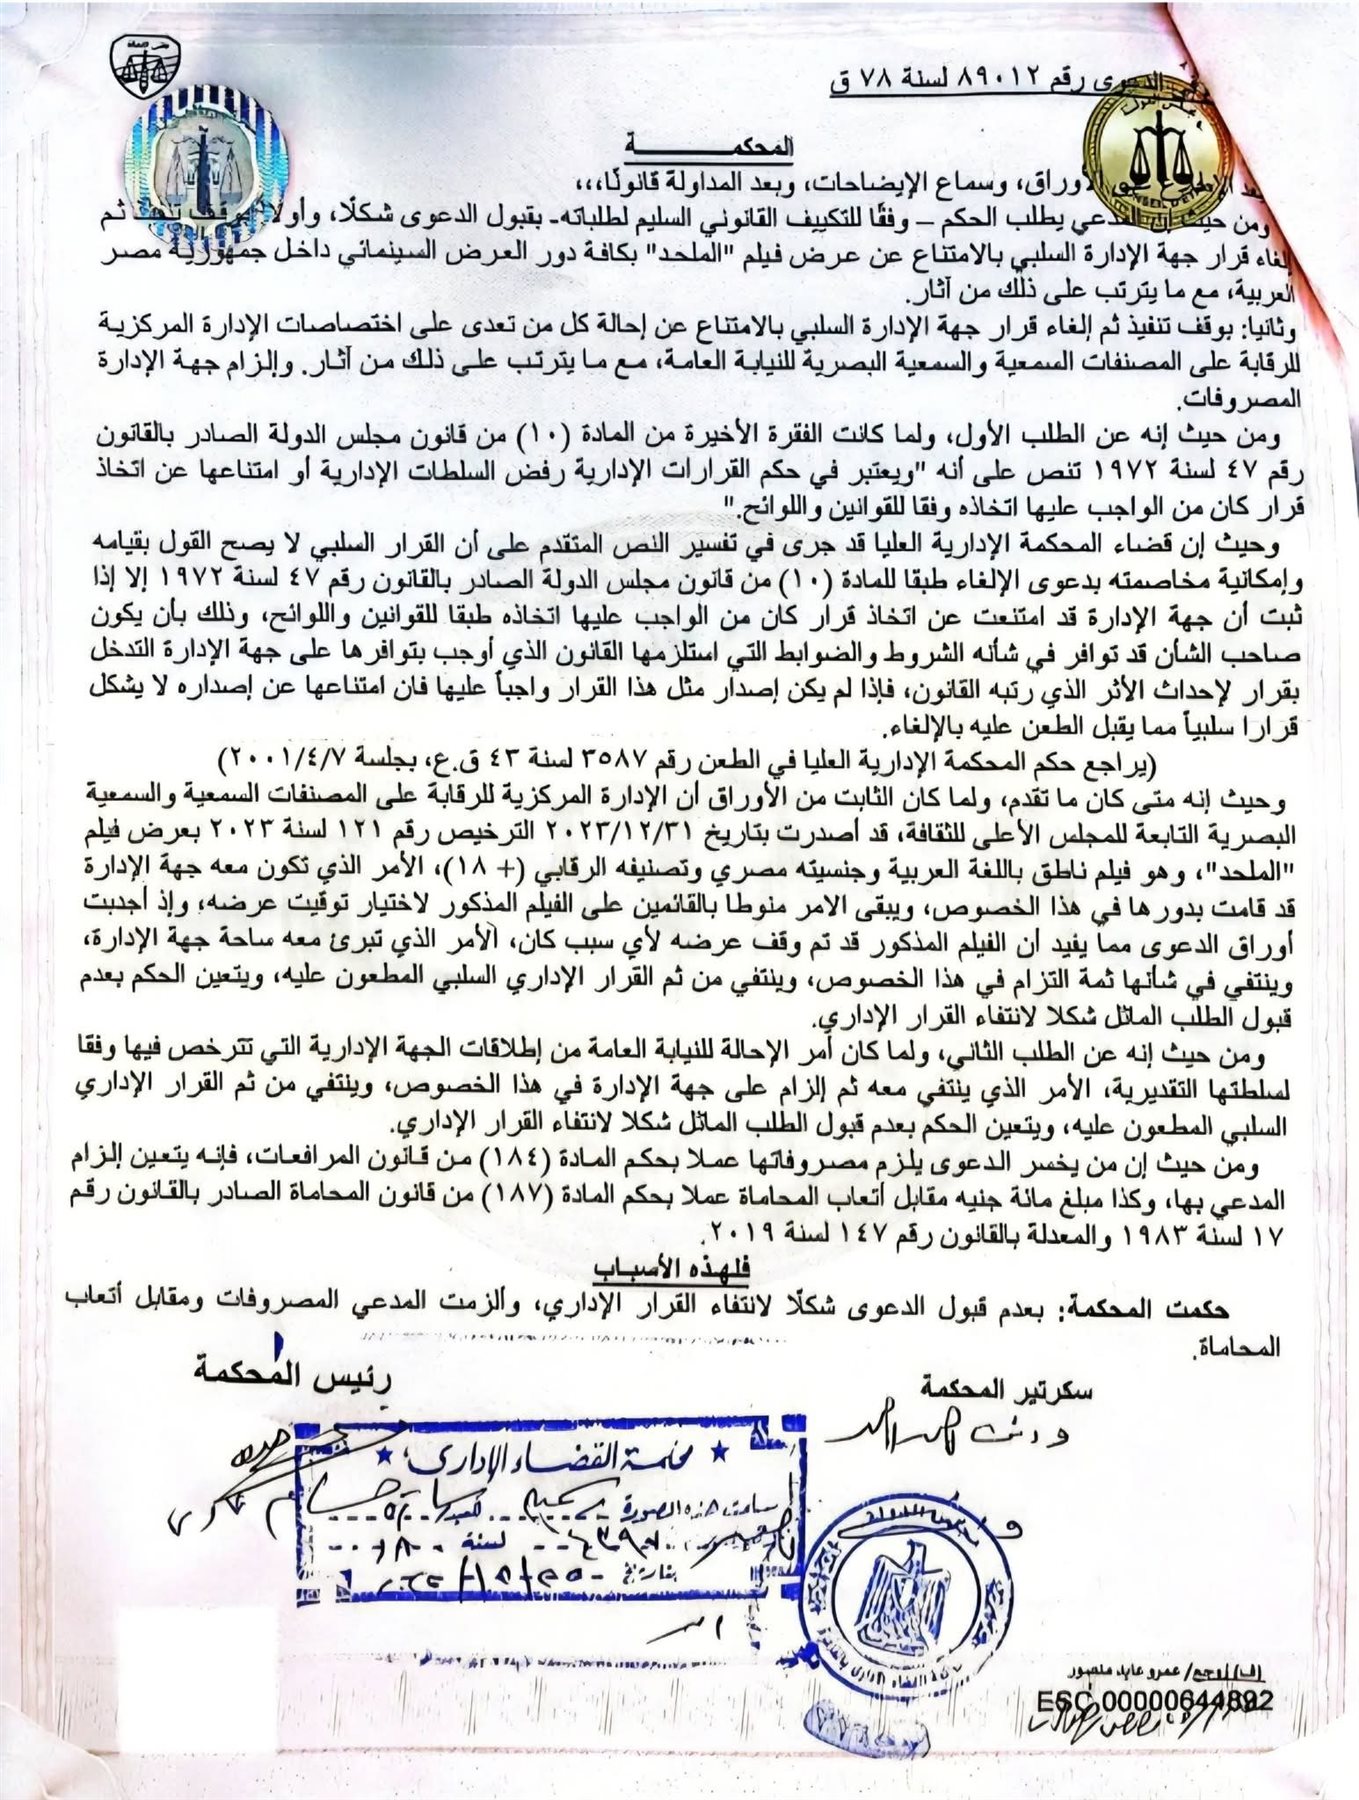 الدعوى رقم ٨٩٠١٢ لسنة ٧٨ ق
المحكمــــــة
الأوراق، وسماع الإيضاحات، وبعد المداولة قانونًا،،،
ومن حيث إن المدعي يطلب الحكم – وفقًا للتكييف القانوني السليم لطلباته- بقبول الدعوى شكلًا، وأولًا: بوقف تنفيذ ثم
إلغاء قرار جهة الإدارة السلبي بالامتناع عن عرض فيلم "الملحد" بكافة دور العرض السينمائي داخل جمهورية مصر
العربية، مع ما يترتب على ذلك من آثار.
وثانيا: بوقف تنفيذ ثم إلغاء قرار جهة الإدارة السلبي بالامتناع عن إحالة كل من تعدى على اختصاصات الإدارة المركزية
للرقابة على المصنفات السمعية والسمعية البصرية للنيابة العامة، مع ما يترتب على ذلك من آثار. وإلزام جهة الإدارة
المصروفات.
ومن حيث إنه عن الطلب الأول، ولما كانت الفقرة الأخيرة من المادة (١٠) من قانون مجلس الدولة الصادر بالقانون
رقم ٤٧ لسنة ١٩٧٢ تنص على أنه "ويعتبر في حكم القرارات الإدارية رفض السلطات الإدارية أو امتناعها عن اتخاذ
قرار كان من الواجب عليها اتخاذه وفقا للقوانين واللوائح."
وحيث إن قضاء المحكمة الإدارية العليا قد جرى في تفسير النص المتقدم على أن القرار السلبي لا يصح القول بقيامه
وإمكانية مخاصمته بدعوى الإلغاء طبقا للمادة (١٠) من قانون مجلس الدولة الصادر بالقانون رقم ٤٧ لسنة ١٩٧٢ إلا إذا
ثبت أن جهة الإدارة قد امتنعت عن اتخاذ قرار كان من الواجب عليها اتخاذه طبقا للقوانين واللوائح، وذلك بأن يكون
صاحب الشأن قد توافر في شأنه الشروط والضوابط التي استلزمها القانون الذي أوجب بتوافرها على جهة الإدارة التدخل
بقرار لإحداث الأثر الذي رتبه القانون، فإذا لم يكن إصدار مثل هذا القرار واجباً عليها فان امتناعها عن إصداره لا يشكل
قرارا سلبياً مما يقبل الطعن عليه بالإلغاء.
(يراجع حكم المحكمة الإدارية العليا في الطعن رقم ٣٥٨٧ لسنة ٤٣ ق.ع، بجلسة ٢٠٠١/٤/٧)
وحيث إنه متى كان ما تقدم، ولما كان الثابت من الأوراق أن الإدارة المركزية للرقابة على المصنفات السمعية والسمعية
البصرية التابعة للمجلس الأعلى للثقافة، قد أصدرت بتاريخ ٢٠٢٣/١٢/٣١ الترخيص رقم ١٢١ لسنة ٢٠٢٣ بعرض فيلم
"الملحد"، وهو فيلم ناطق باللغة العربية وجنسيته مصري وتصنيفه الرقابي (+ ١٨)، الأمر الذي تكون معه جهة الإدارة
قد قامت بدورها في هذا الخصوص، ويبقى الامر منوطا بالقائمين على الفيلم المذكور لاختيار توقيت عرضه، وإذ أجدبت
أوراق الدعوى مما يفيد أن الفيلم المذكور قد تم وقف عرضه لأي سبب كان، الأمر الذي تبرئ معه ساحة جهة الإدارة،
وينتفي في شأنها ثمة التزام في هذا الخصوص، وينتفي من ثم القرار الإداري السلبي المطعون عليه، ويتعين الحكم بعدم
قبول الطلب الماثل شكلا لانتفاء القرار الإداري.
ومن حيث إنه عن الطلب الثاني، ولما كان أمر الإحالة للنيابة العامة من إطلاقات الجهة الإدارية التي تترخص فيها وفقا
لسلطتها التقديرية، الأمر الذي ينتفي معه ثم إلزام على جهة الإدارة في هذا الخصوص، وينتفي من ثم القرار الإداري
السلبي المطعون عليه، ويتعين الحكم بعدم قبول الطلب الماثل شكلا لانتفاء القرار الإداري.
ومن حيث إن من يخسر الدعوى يلزم مصروفاتها عملا بحكم المادة (١٨٤) من قانون المرافعات، فإنه يتعين إلزام
المدعي بها، وكذا مبلغ مائة جنيه مقابل أتعاب المحاماة عملا بحكم المادة (١٨٧) من قانون المحاماة الصادر بالقانون رقم
١٧ لسنة ١٩٨٣ والمعدلة بالقانون رقم ١٤٧ لسنة ٢٠١٩.
فلهذه الأسباب
حكمت المحكمة: بعدم قبول الدعوى شكلًا لانتفاء القرار الإداري، وألزمت المدعي المصروفات ومقابل أتعاب
المحاماة.
سكرتير المحكمة
رئيس المحكمة
محكمة القضاء الإدارى
سلمت هذه الصورة
لسنة
بتاريخ
عمرو عابد منصور
ESC 00000644892